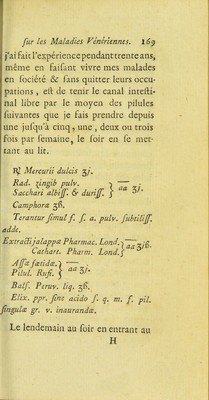 sur les Maladies Vénériennes. 169
j'ai fait l'expérience pendant trente ans,
même en faisant vivre mes malades
en société & sans quitter leurs occu-
pations, est de tenir le canal intesti-
nal libre par le moyen des pilules
suivantes que je fais prendre depuis
une jusqu'à cinq, une, deux ou trois
fois par semaine, le soir en se met-
tant au lit.
℞ Mercurii dulcis ʒj.
Rad. zingib pulv. } aa ʒj.
Sacchari albiss. & duriss.
Camphoræ ʒß.
Terantur simul f. s. a. pulv. subtiliss.
adde.
Extracti jalappæ Pharmac. Lond. } aa ʒjß.
Cathart. Pharm. Lond.
Assæ fœtidæ. } aa ʒj.
Pilul. Rufi.
Balf. Peruv. liq. ʒß.
Elix. ppr. sine acido s. q. m. f. pil.
singulæ gr. v. inaurandæ.
Le lendemain au soir en entrant au
H